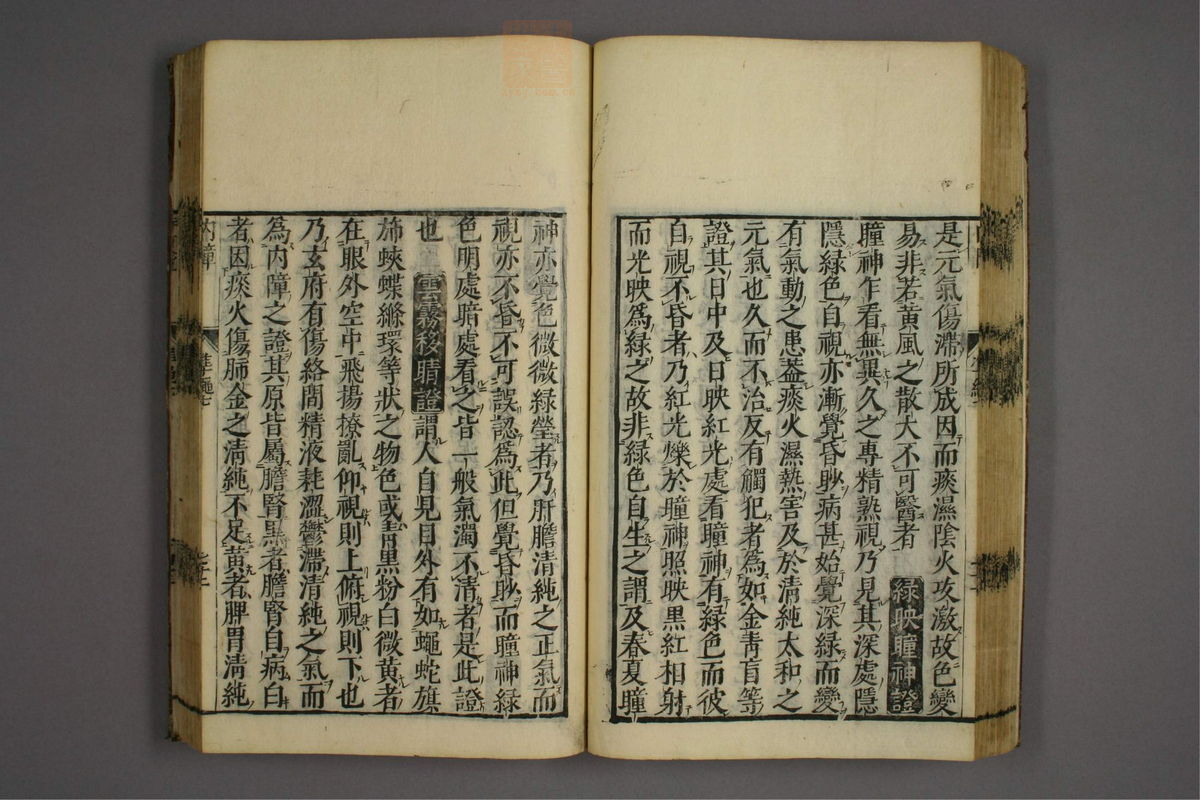 是元氣傷滯所成因而痰濕陰火攻激故色變
易非若黃風之散大不可醫者 綠映瞳神證
瞳神乍看無異久之專精熟視乃見其深處隱
隱綠色自視亦漸覺昏眇病甚始覺深綠而變
有氣動之患葢痰火濕熱害及於清純太和之
元氣也久而不治反有觸犯者為如金青盲等
證其日中及日映紅光處看瞳神有綠色而彼
自視不昏者乃紅光爍於瞳神照映黑紅相射
而光映為綠之故非綠色自生之謂及春夏瞳
神亦覺色微微綠瑩者乃肝膽清純之正氣而
視亦不昏不可誤認為此但覺昏眇而瞳神綠
色明處暗處看之皆一般氣濁不清者是此證
也 雲霧移睛證 謂人自見目外有如蠅蛇旗
旆蛺蝶縧環等狀之物色或青黑粉白微黃者
在眼外空中飛揚撩亂仰視則上俯視則下也
乃玄府有傷絡間精液耗澀鬱滯清純之氣而
為內障之證其原皆屬膽腎黑者膽腎自病白
者因痰火傷肺金之清純不足黃者脾胃清純
內障